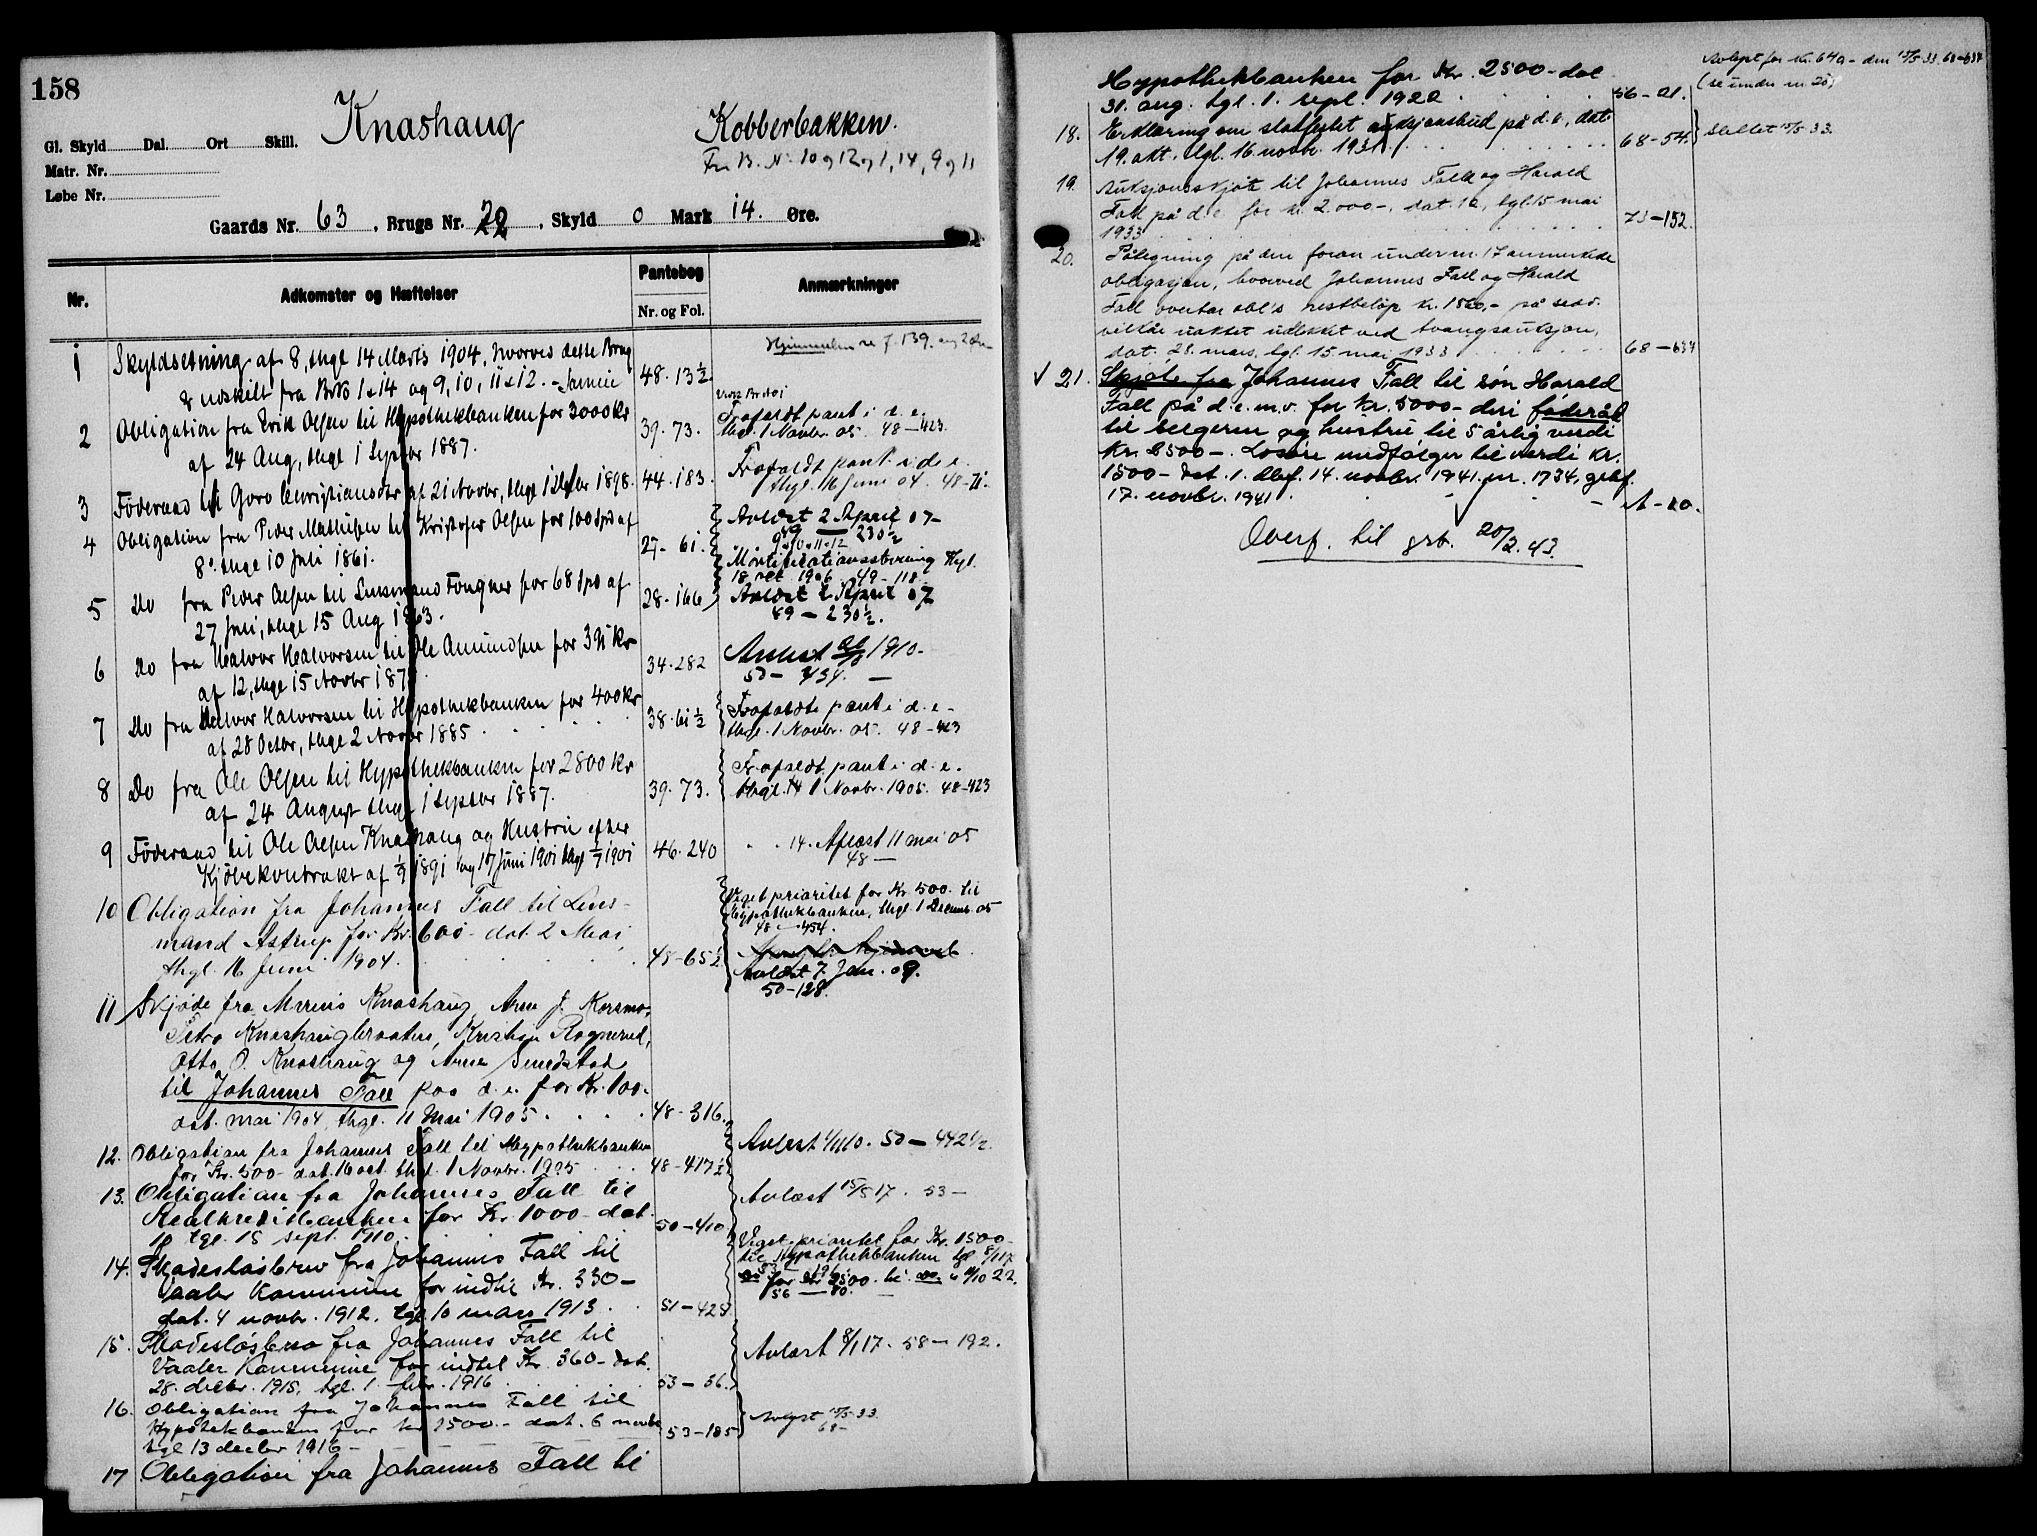 158
Knashaug
Kobberbakken.
Fra B. No 10 og 12 og 1, 14, 9 og 11
Gl. Skyld Dal. Ort Skill.
Matr. Nr.
Løbe Nr.
Gaards Nr. 63, Brugs Nr. 22, Skyld 0 Mark 14. Øre.
Nr.
Adkomster og Hæftelser
Pantebog
Nr. og Fol.
Anmærkninger
1 Skyldsetning af 8, thgl 14 Marts 1904, hvorved dette Brug
er udskilt fra BrNo 1 & 14 og 9, 10, 11 & 12. - Samme 48-13½
2 Obligation fra Erik Olsen til Hypothekbanken for 3000 Kr
af 24 Aug, thgl 1 Septbr 1887. 39-73.
Frafaldt pant i d. e.
thgl. 1 Novbr. 05. 48-423.
3 Føderaad til Goro Christiansdtr af 21 Novbr, thgl 1 Decbr 1898. 44-183.
Frafaldt pant i d. e.
thgl. 16 Juni 04. 48-71.
4 Obligation fra Peder Mathisen til Kristofer Olsen for 100 Spd af
8. thgl 10 Juli 1861. 27-61.
Avlæst 2 April 07-
49 — 230½
9 & 10 & 11 & 12
Mortifikationsstevning thgl.
18 oct 1906 49-118.
5 Do fra Peder Olsen til Lensmand Fougner for 68 Spd af
27 Juli, thgl 15 Aug 1863. 28-166
Avlæst 2 April 07
49 - 230½.
6 Do fra Halvor Halvorsen til Ole Amundsen for 391 Kr
af 12, thgl 15 Novbr 187 34-282
1910-
50- 434. -
7 Do fra Halvor Halvorsen til Hypothekbanken for 400 Kr
af 28 Octbr, thgl 2 Novbr 1885. 38-61½
Frafaldt pant i d. e.
thgl. 1 Novbr. 05. 48-423
8 Do fra Ole Olsen til Hypothekbanken for 2800 Kr
af 24 August thgl 1 Septbr 1887. 39-73.
Frafaldt pant i d. e.
thgl. 1 Novbr. 1905. 48-423
9 Føderaad til Ole Olsen Knashaug og Hustru efter
Kjøbekontrakt af 1891 og 17 Juni 1901 thgl 1901 46-240
14. Aflæst 11 mai 05
48 —
10 Obligation fra Johannes Fall til Lens-
mand Astrup for Kr. 600- dat. 2 Mai,
thgl. 16 Juni 1904. 48-65½
Veget prioritet for Kr. 500. til
Hypothekbanken, thgl. 1 Decmb. 05
48 - 454.
Avlæst 7. Jan. 09.
50-128.
11 Skjøde fra Marius Knashaug, Arne J. Korsmo,
Petra Knashaugbraaten, Kristian Rognerud,
Otto O. Knashaug og Arne Smedstad
til Johannes Fall paa d. e. for Kr. 100.
dat. mai 1904, thgl. 11 Mai 1905. 48-316.
12. Obligation fra Johannes Fall til Hypothekbanken
for Kr. 500- dat. 16 oct. thgl. 1 Novbr. 1905 48-417½
Avlæst 4/1110. 50 — 442½.
13. Obligation fra Johannes Fall til
Realkreditbanken for Kr 1000- dat.
tgl. 15 sept. 1910. 50-410.
Avlæst 15/5 17. 53 —
14. Skadesløsbrev fra Johannes Fall til
Vaaler Kommune for indtil Kr. 330-
dat. 4 novbr. 1912. tgl. 10 mars 1913. 51-428
Veget prioritet for Kr. 1500-
til Hypothekbanken tgl 8/1 17
Do for Kr 2500. til do. 10 22.
56 — 80.
15. Skadesløsbrev fra Johannes Fall til
Vaaler Kommune for indtil Kr. 360- dat.
28. decbr. 1915, tgl. 1. febr. 1916 53-36.
Avlæst 8/1 17. 53 — 192.
16. Obligation fra Johannes Fall til
Hypotekbanken for kr 1500.- dat. 6 novbr
tgl 13 decbr 1916- 53-185
Avlyst 15/5 33.
68-
17 Obligation fra Johannes Fall til
Hypothekbanken for Kr. 2500- dat.
31. aug. tgl. 1. sept. 1922 56-21.
Avlyst for kr. 640- den 15/5 33 68-634
(se under nr. 20)
18. Erklæring om stadfestet auksjonsbud på d. e., dat.
19. okt. tgl. 16 novbr. 1931. 68-54.
Slettet 15/5 33.
19. Auksjonsskjøte til Johannes Fall og Harald
Fall på d. e. for kr. 2.000-, dat. 12, tgl. 15 mai
1933 73-152.
20. Påtegning på den foran under nr. 17 anmerkede
obligasjon, hvorved Johannes Fall og Harald
Fall overtar obl's restbeløp kr. 1860,- på sedv.
vilkår uaktet udekket ved tvangsauksjon,
dat. 28. mars, tgl. 15 mai 1933 68-634
√ 21. Skjøte fra Johannes Fall til søn Harald
Fall på d. e. m. v. for kr. 5000- deri føderåd
til selgeren og hustru til 5 årlig verdi
kr. 2500-. Losøre medfølger til verdi kr.
1500- dat. 1. dbf. 14. novbr. 1941. nr. 1734, gebf.
17. novbr. 1941. A-20.
Overf. til grb. 20/2. 43.